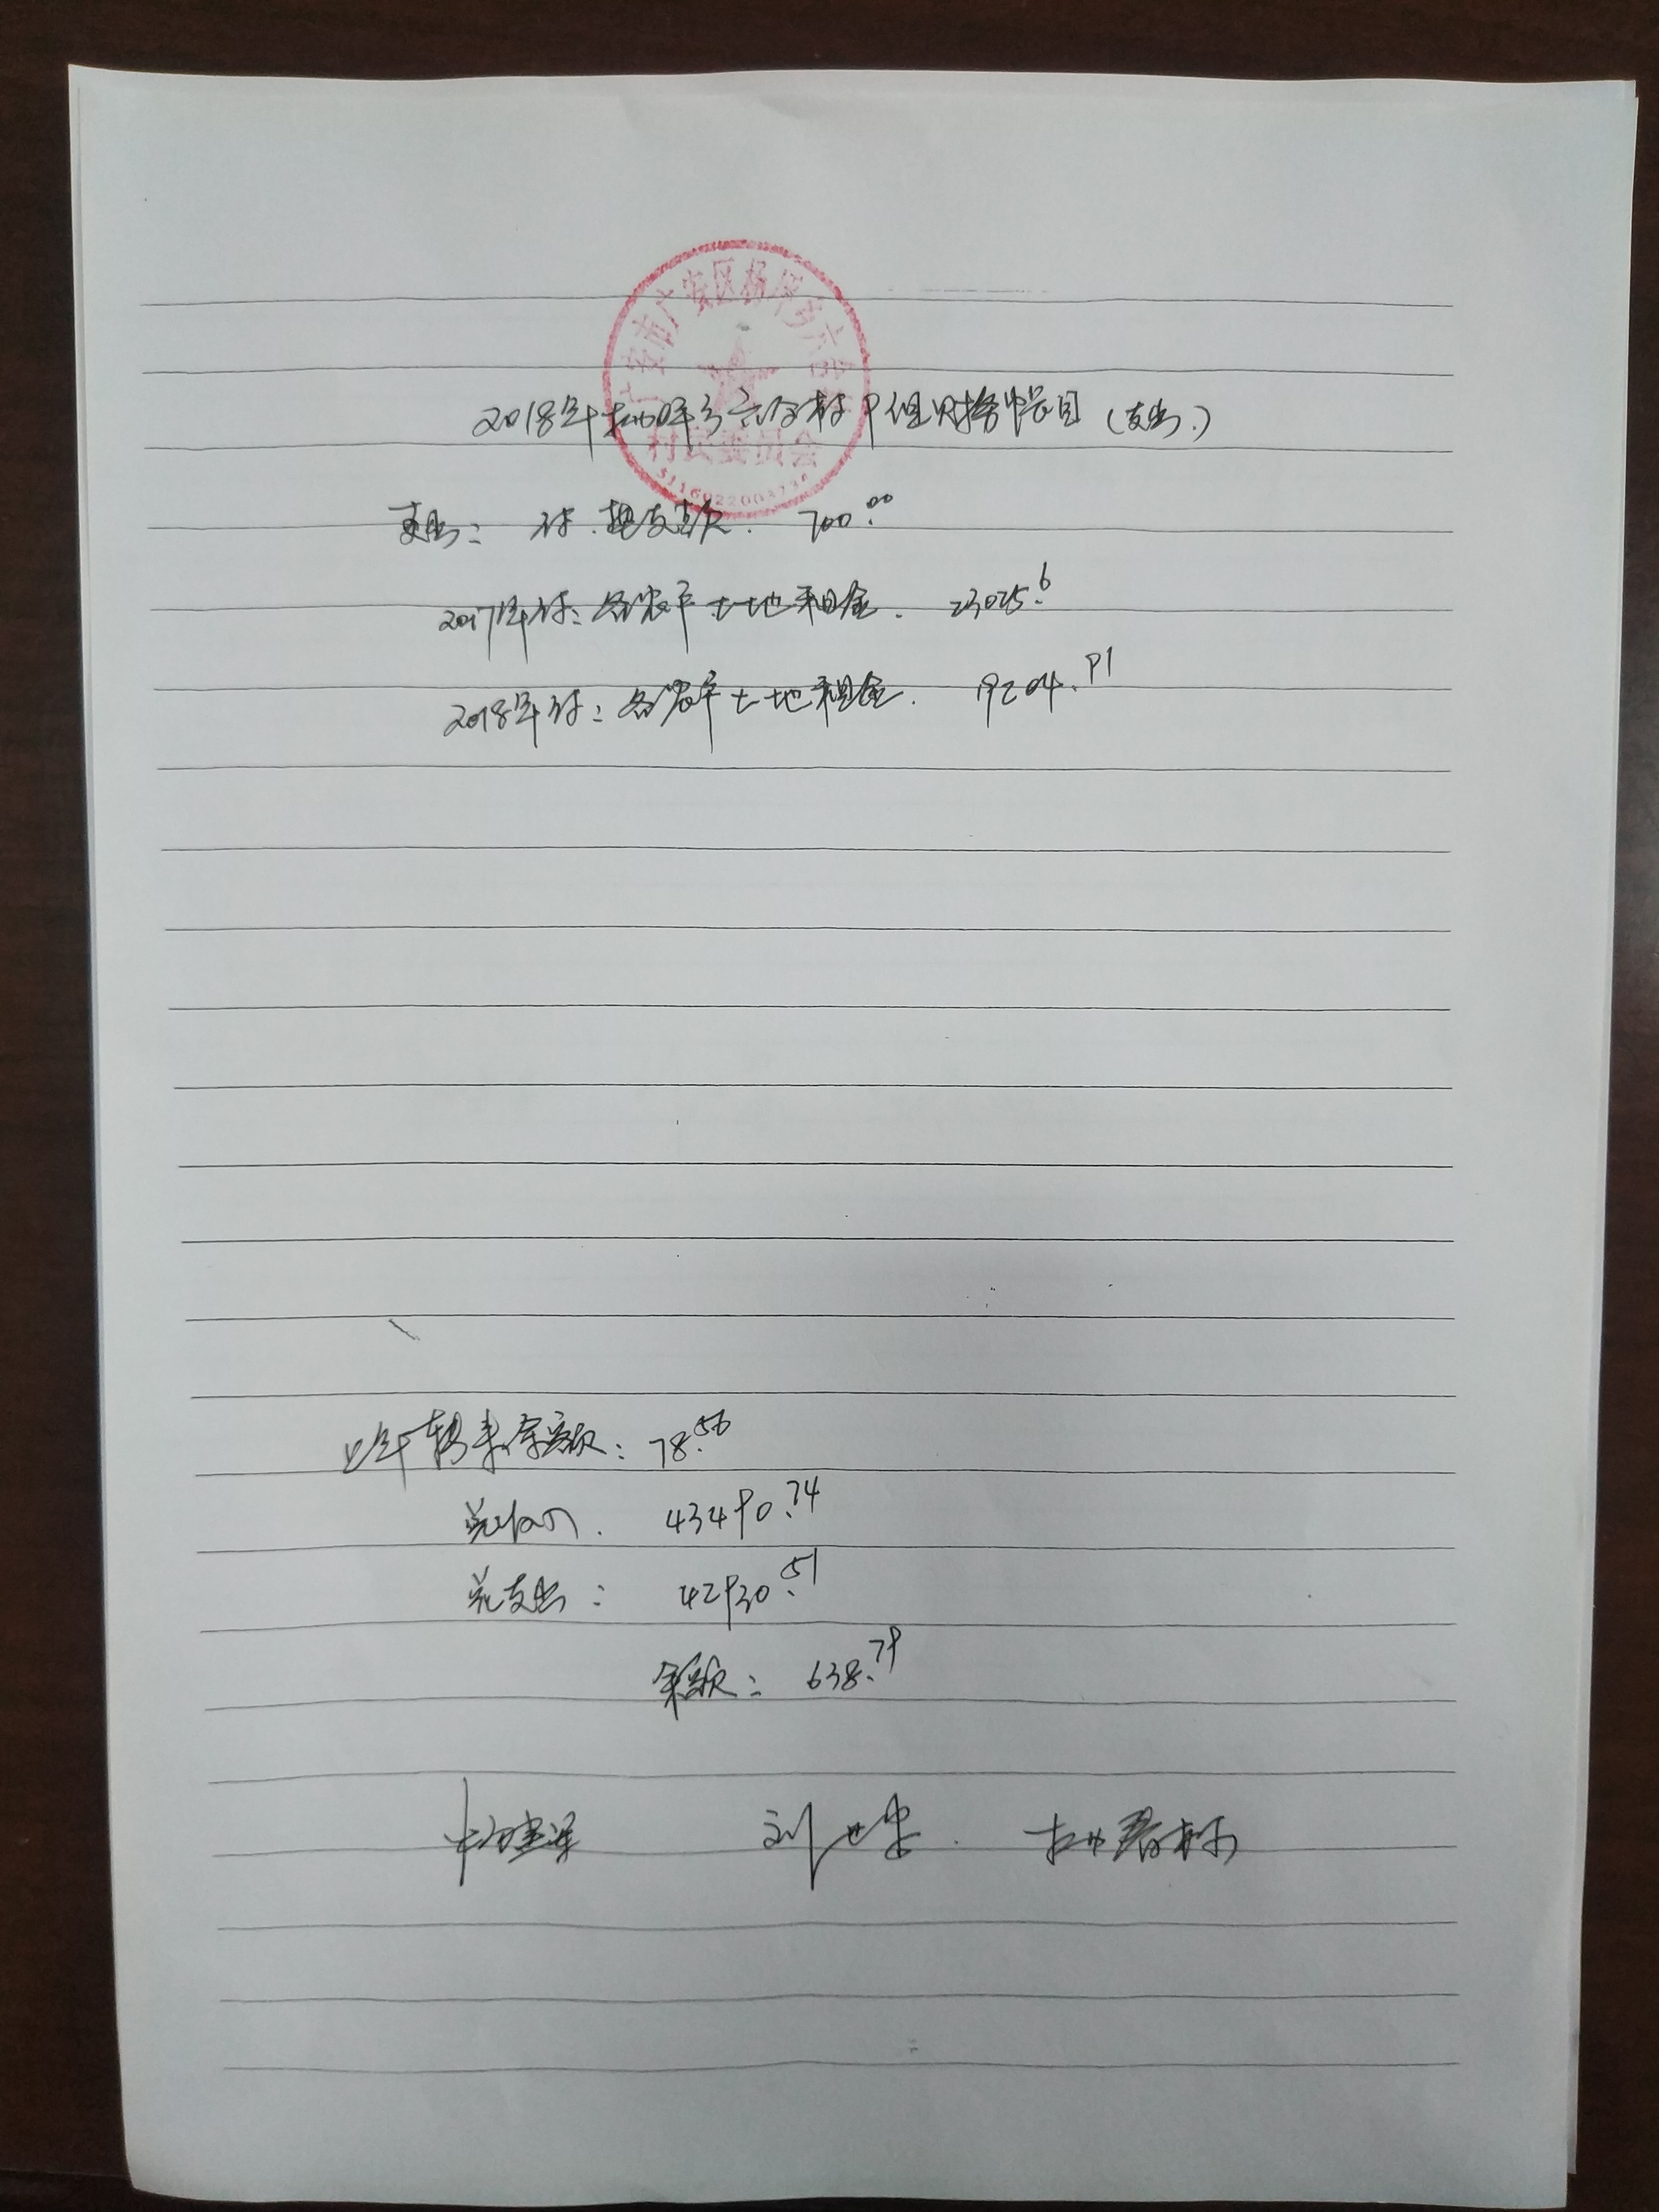 广安市广安区杨坪乡六合村
村民委员会
2018年杨坪乡六合村9组财务帐目（支出.）
支出： 付. 700.00
2017年付：各农户土地租金. 23025.6
2018年付：各农户土地租金. 19204.91
上年转来余额：78.56
总收入. 43490.74
总支出： 42930.51
余额：638.79
刘世